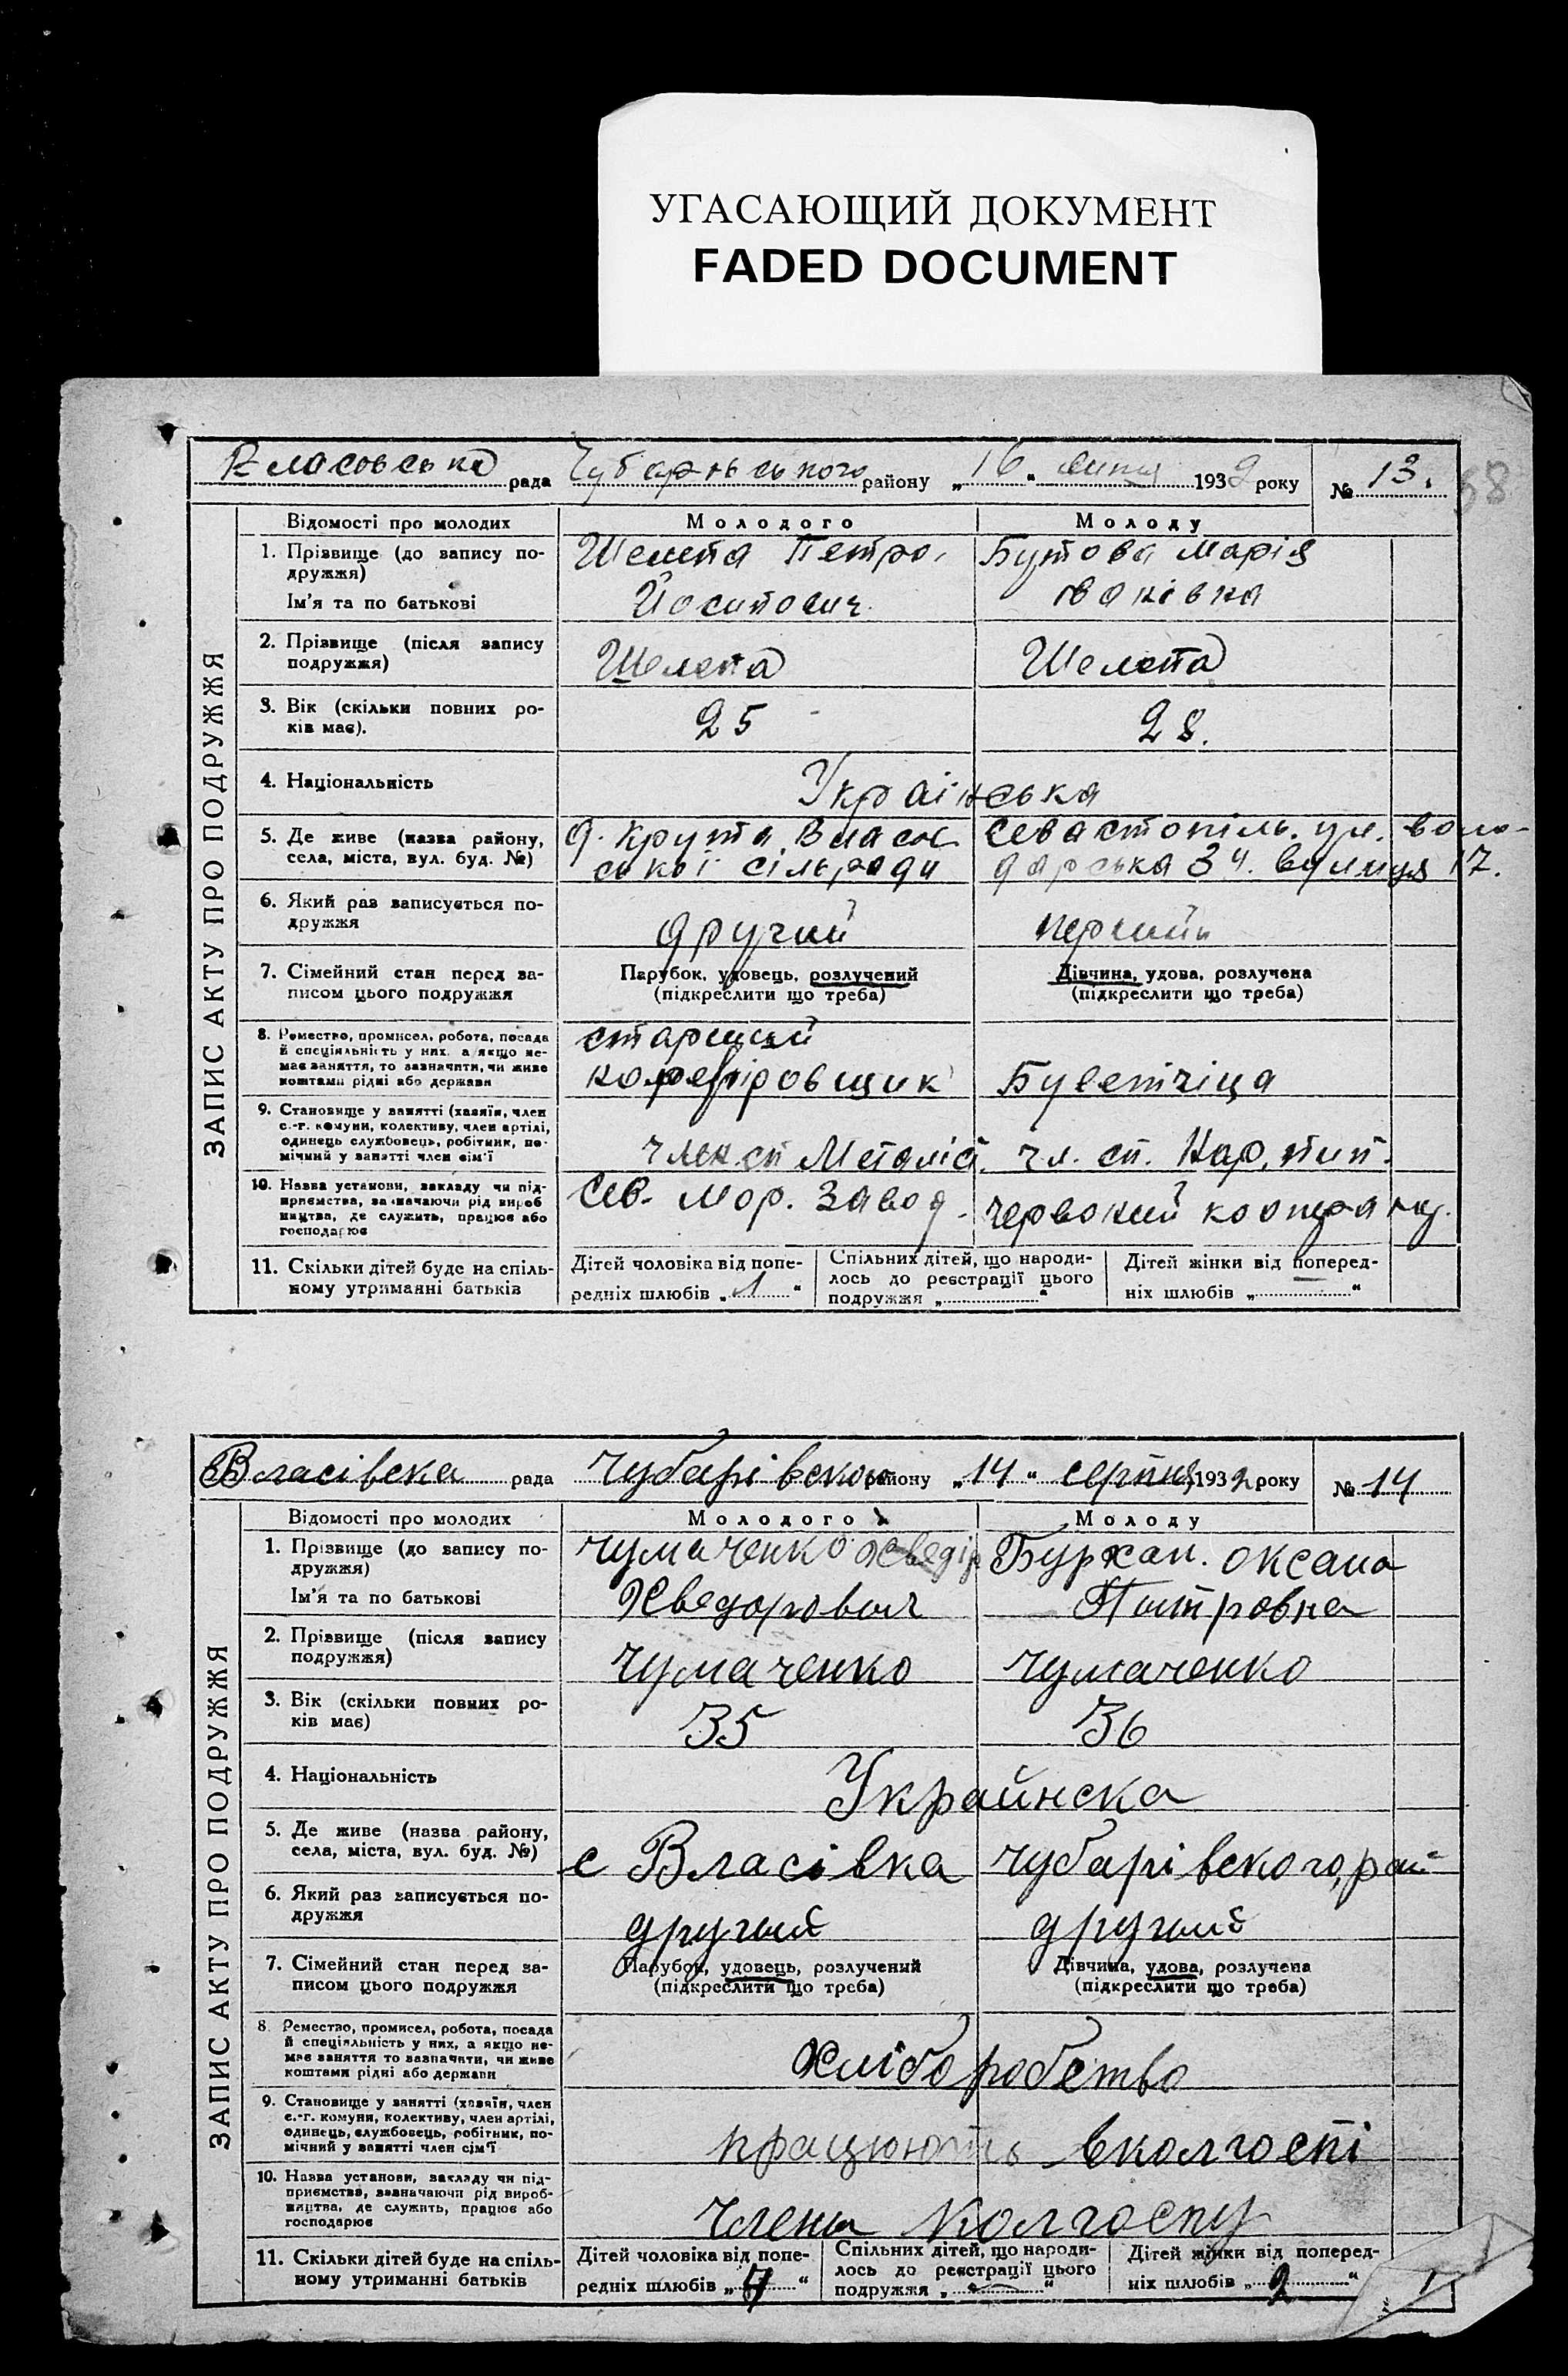 УГАСАЮЩИЙ ДОКУМЕНТ
FADED DOCUMENT
Власовська рада Чубарвського району „16“ липня 1932 року № 13. 68
ЗАПИС АКТУ ПРО ПОДРУЖЖЯ
Відомості про молодих Молодого Молоду
1. Прізвище (до запису по- Шелепа Петро. Бутова Марія
дружжя)
Ім'я та по батькові Йосипович. Іванівна
2. Прізвище (після запису
подружжя) Шелепа Шелепа
3. Вік (скільки повних ро- 25 28.
ків має).
4. Національність Українська
5. Де живе (назва району, д. Крута, Власов Севастопіль. ул. воло-
села, міста, вул. буд. №) ської сільради дарська 3ч. вулиця 17.
6. Який раз записується по-
дружжя другий перший
7. Сімейний стан перед за- Парубок, удовець, розлучений Дівчина, удова, розлучена
писом цього подружжя (підкреслити що треба) (підкреслити що треба)
8. Ремество, промисел, робота, посада старший
й спеціяльність у них, а якщо не-
має заняття, то зазначити, чи живе Буветчіца
коштами рідні або держави
9. Становище у занятті (хазяїн, член
с.-г. комуни, колективу, член артілі,
одинець службовець, робітник, по- член.сп Металіст. чл. сп. Нар, пит.
мічний у занятті член сім'ї
10. Назва установи, закладу чи під- Сев. Мор. Завод. Червоний
приємства, зазначаючи рід вироб
ництва, де служить, працює або
господарює
11. Скільки дітей буде на спіль- Дітей чоловіка від попе- Спільних дітей, що народи- Дітей жінки від поперед-
ному утриманні батьків редніх шлюбів „1“ лось до реєстрації цього ніх шлюбів „ “
подружжя „ “
Власівска рада Чубарівского району „14“ серпня 1932 року № 14
ЗАПИС АКТУ ПРО ПОДРУЖЖЯ
Відомості про молодих Молодого Молоду
1. Прізвище (до запису по- Чумаченко Хведір Бурхан. Оксана
дружжя)
Ім'я та по батькові Хведорович Питровна
2. Прізвище (після запису
подружжя) Чумаченко Чумаченко
3. Вік (скільки повних ро- 35 36
ків має)
4. Національність Украйнска
5. Де живе (назва району,
села, міста, вул. буд. №) с Власівка Чубарівского, рай
6. Який раз записується по-
дружжя другий другий
7. Сімейний стан перед за- Парубок, удовець, розлучений Дівчина, удова, розлучена
писом цього подружжя (підкреслити що треба) (підкреслити що треба)
8. Ремество, промисел, робота, посада
й спеціяльність у них, а якщо не-
має заняття то зазначити, чи живе хлiборобство
коштами рідні або держави
9. Становище у занятті (хазяїн, член
с.-г. комуни, колективу, член артілі,
одинець, службовець, робітник, по- працюють вколгоспі
мічний у занятті член сім'ї
10. Назва установи, закладу чи під-
приємства, зазначаючи рід вироб-
ництва, де служить, працює або члени колгоспу
господарює
11. Скільки дітей буде на спіль- Дітей чоловіка від попе- Спільних дітей, що народи- Дітей жінки від поперед-
ному утриманні батьків редніх шлюбів „ “ лось до реєстрації цього ніх шлюбів „2“
подружжя „ “